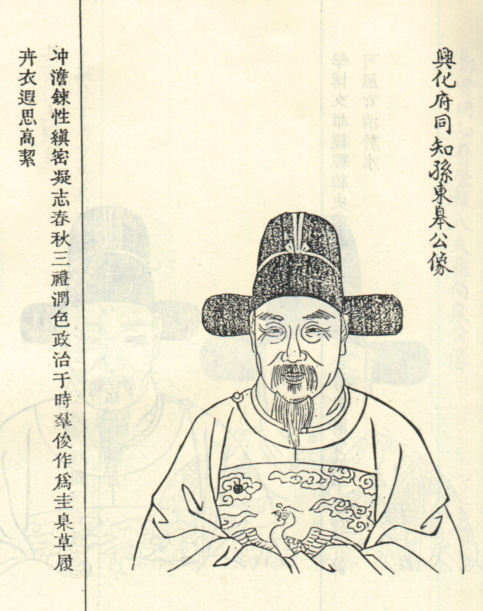 興化府同知孫東皐公像
冲澹鍊性縝密凝志春秋三禮潤色政治于時羣俊作爲圭臬草履
卉衣遐思高絜